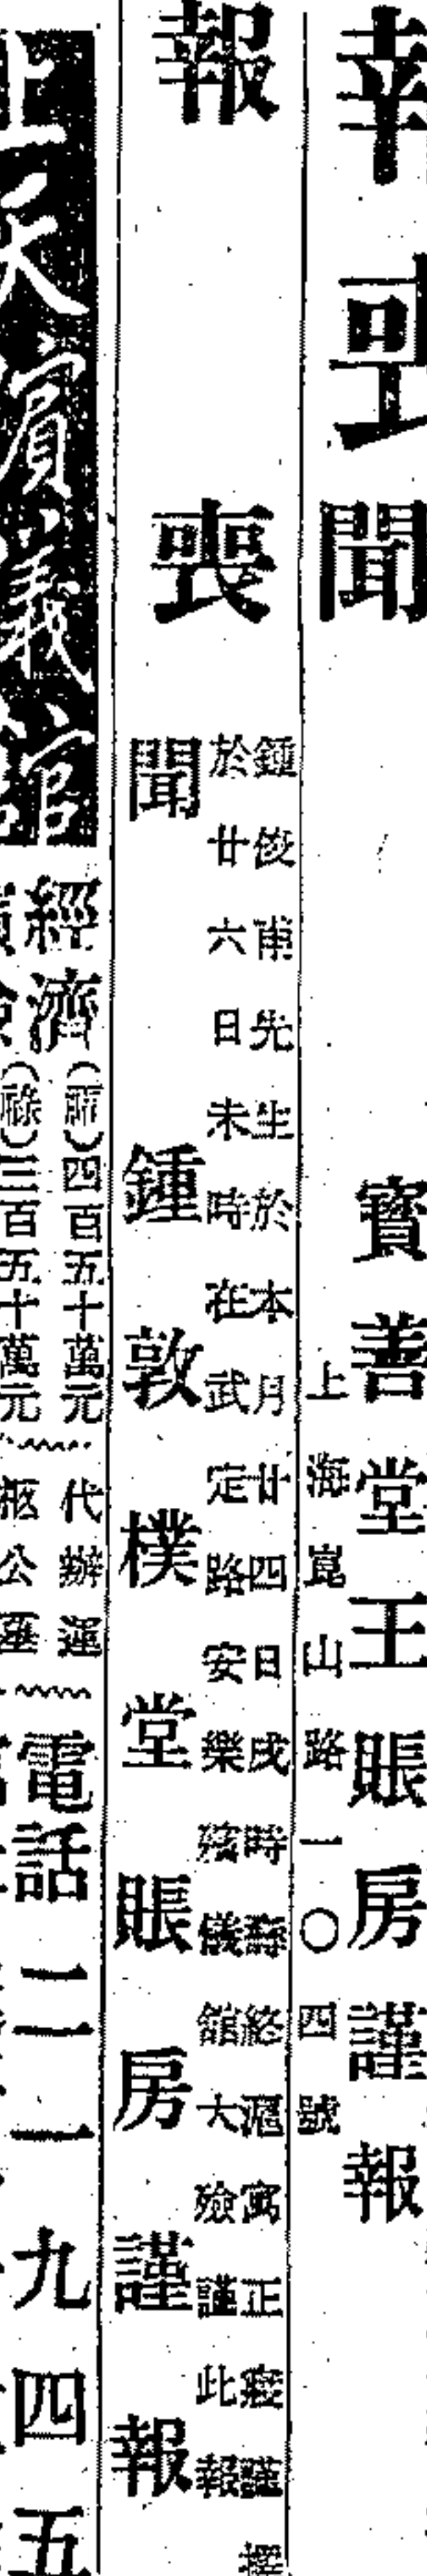 報喪聞
寶善堂王賬房謹報
上海崑山路一〇四號
報喪聞
鍾俊甫先生於本月廿四日戌時壽終滬寓正寢謹擇
於廿六日未時在武定路安樂殯儀館大殮謹此報
鍾敦樸堂賬房謹報
上天殯儀館
經濟
四百五十萬元
三百五十萬元
代辦運
柩公墓
電話二一九四五